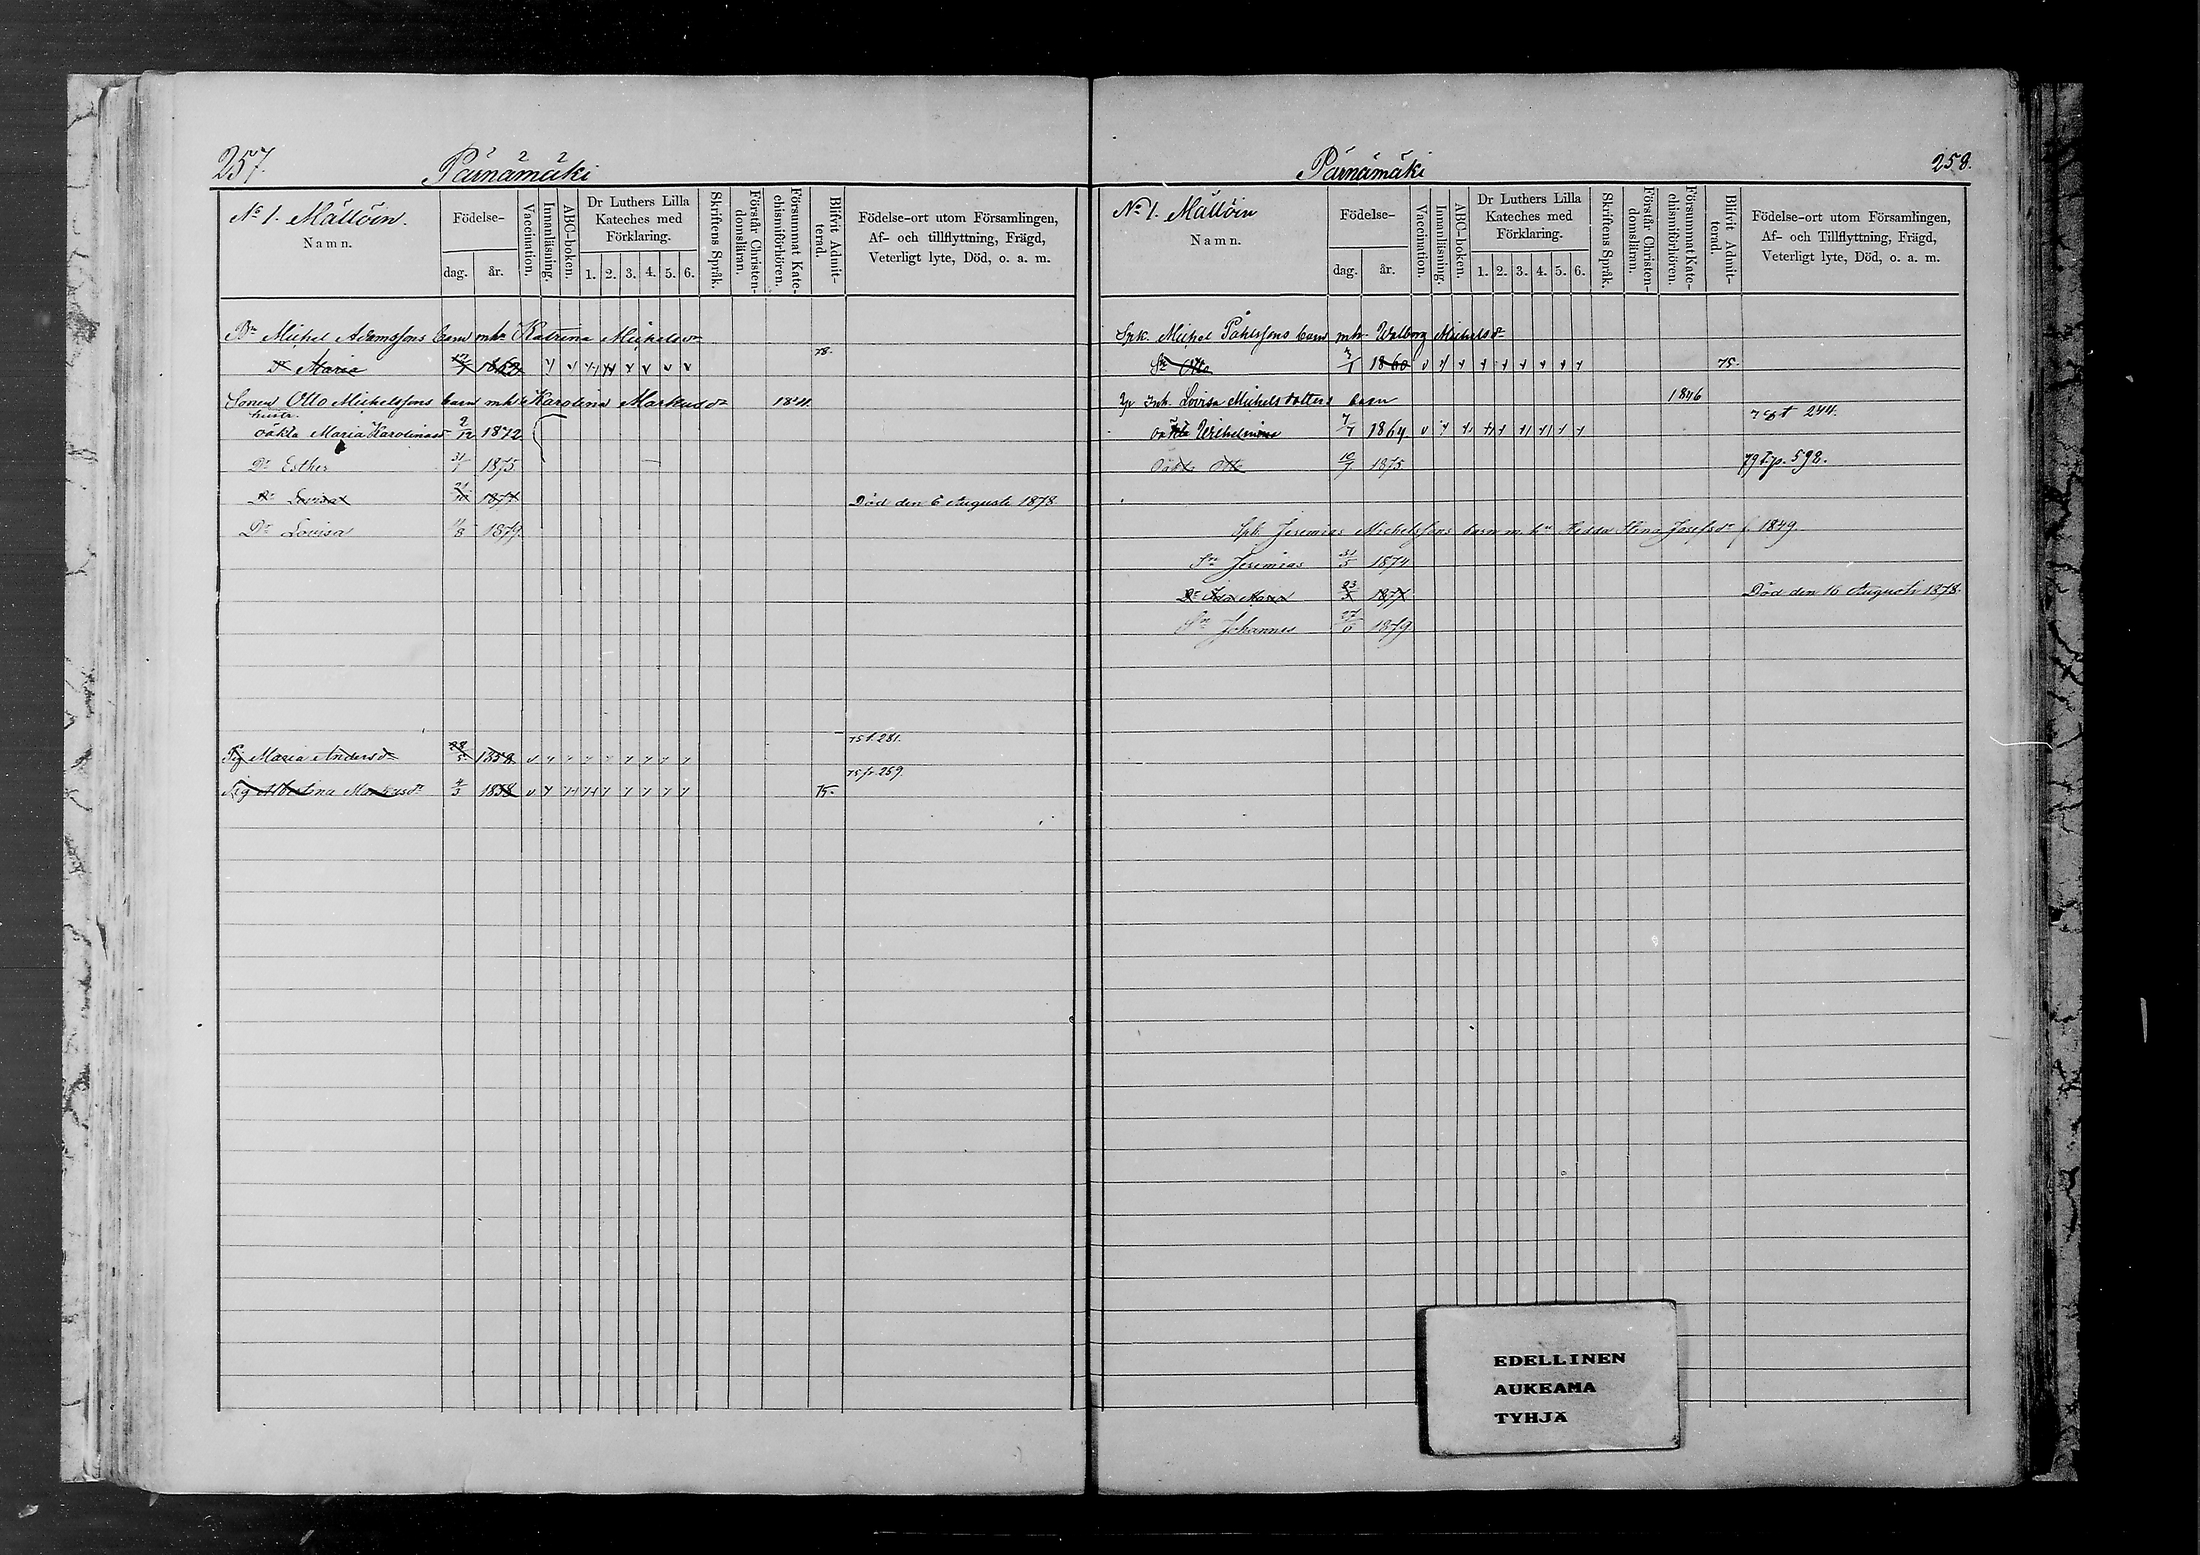 257.
Pärnämäki
No 1. Mällöin.
Namn.
Födelse-
dag.
år.
Vaccination.
Innanläsning.
ABC-boken.
Dr Luthers Lilla
Kateches med
Förklaring.
1. 2. 3. 4. 5. 6.
Skriftens Språk.
Förstår Christen-
domsläran.
Försummat Kate-
chismiförhören.
Blifvit Admit-
terad.
Födelse-ort utom Församlingen,
Af- och tillflyttning, Frägd,
Veterligt lyte, Död, o. a. m.
Bn Michel Adamssons barn mhu Katrina Michelsdr
Dr Maria 1862 78.
Sonen Otto Michelssons barn mhu Karolina Markusdr 1841.
hustr.
oäkta Maria Karolinasdr 2/12 1872
Dr Esther 31/1 1875
Dr Lovisa 21/10 1877 Död den 6 Augusti 1878
Dr Lovisa 11/8 1879.
75 t. 281.
Pig Maria Andersdr 28/5 1858
75 fr 259.
Pig Albertina Markusdr 4/3 1858 75.
Pärnämäki
258.
No 1. Mällöin
Namn.
Födelse-
dag.
år.
Vaccination.
Innanläsning.
ABC-boken.
Dr Luthers Lilla
Kateches med
Förklaring.
1. 2. 3. 4. 5. 6.
Skriftens Språk.
Förstår Christen-
domsläran.
Försummat Kate-
chismiförhören.
Blifvit Admit-
terad.
Födelse-ort utom Församlingen,
Af- och Tillflyttning, Frägd,
Veterligt lyte, Död, o. a. m.
Spk. Michel Påhlssons barn mhu Walborg Michelsdr
Sn Otto 7/1 1860 75.
Inh. Lovisa Michelsdotters barn 1846
244.
oäkta Wilhelmina 7/7 1864
Oäkta Otto 10/7 1875 79 T.p. 592.
Spk. Jeremias Michelssons barn m. hu Hedda Stina Josefsdr f. 1849.
Sn Jeremias 31/5 1874
Dr Ida Maria 23/3 1877 Död den 16 Augusti 1878.
Sn Johannes 27/6 1879
EDELLINEN
AUKEAMA
TYHJÄ